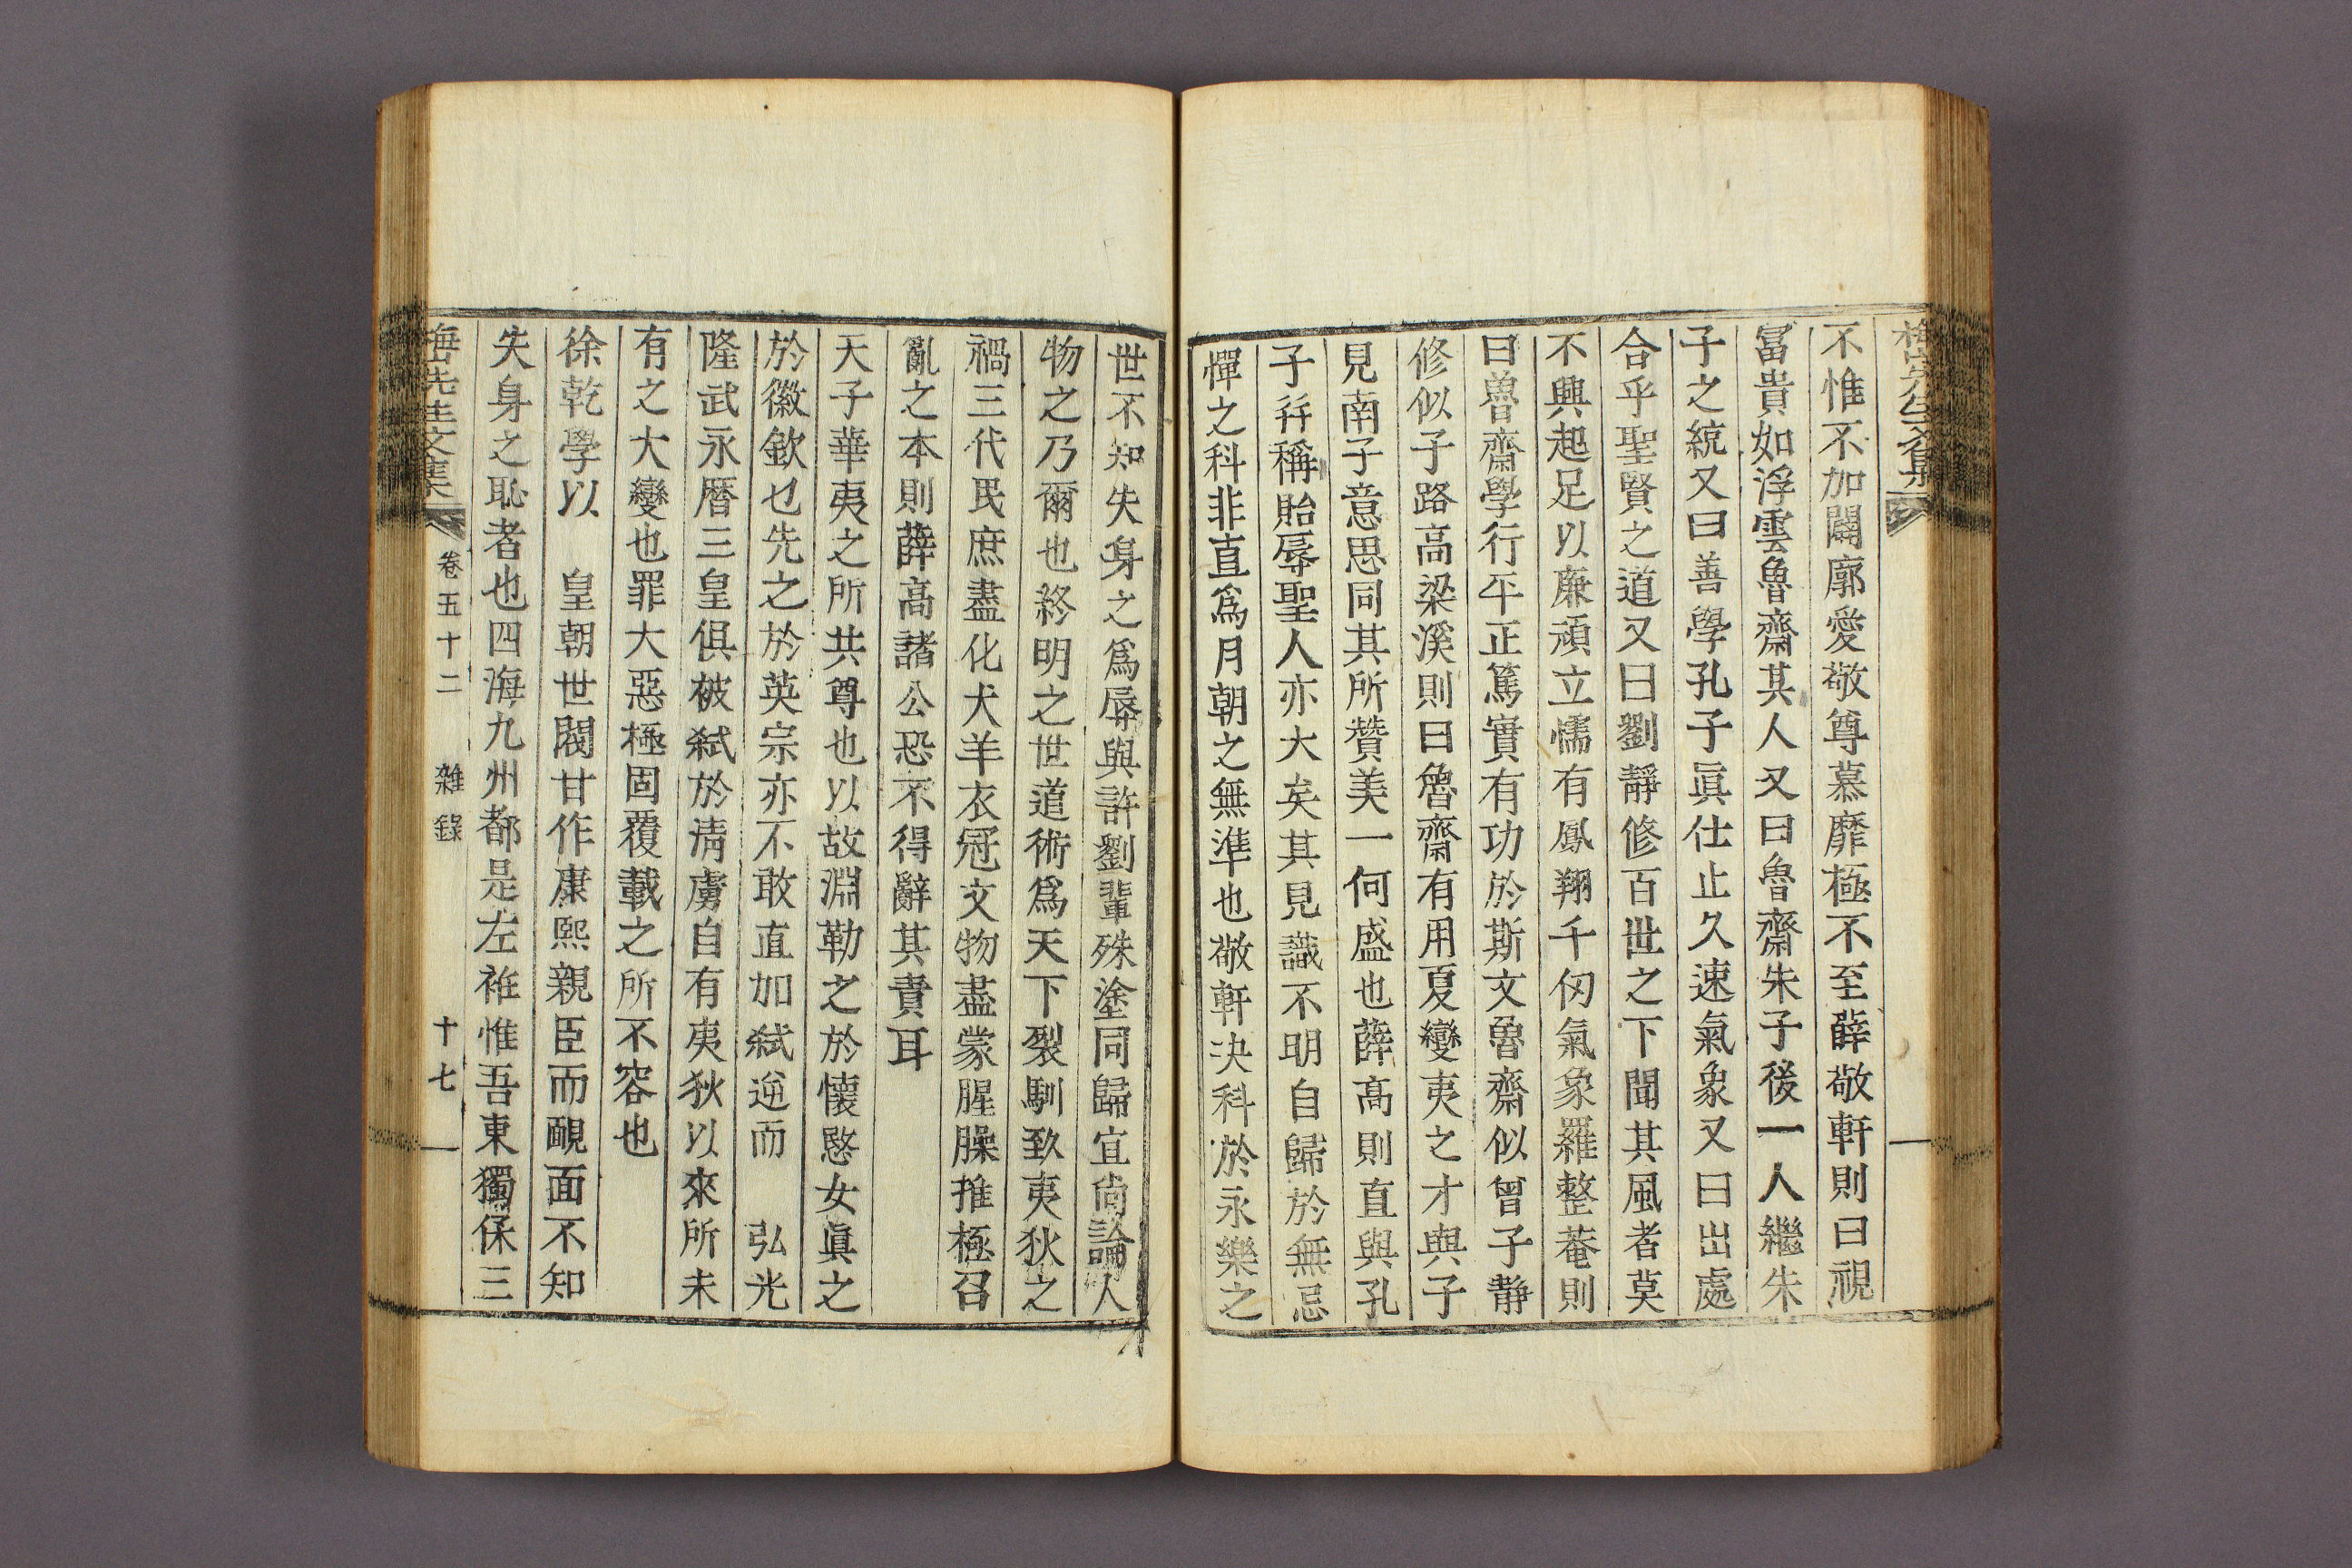 不惟不加闢廓愛敬尊慕靡極不至薛敬軒則曰視
冨貴如浮雲魯齋其人又曰魯齋朱子後一人繼朱
子之統又曰善學孔子眞仕止久速氣象又曰出處
合乎聖賢之道又曰劉靜修百世之下聞其風者莫
不興起足以廉頑立懦有鳳翔千仞氣象羅整菴則
曰魯齋學行平正篤實有功於斯文魯齋似曾子靜
修似子路高梁溪則曰魯齋有用夏變夷之才與子
見南子意思同其所贊美一何盛也薛高則直與孔
子幷稱貽辱聖人亦大矣其見識不明自歸於無忌
憚之科非直爲月朝之無準也敬軒决科於永樂之
世不知失身之爲辱與許劉輩殊塗同歸宜尙論人
物之乃爾也終明之世道術爲天下裂馴致夷狄之
禍三代民庶盡化犬羊衣冠文物盡蒙腥臊推極召
亂之本則薛高諸公恐不得辭其責耳
天子華夷之所共尊也以故淵勒之於懷愍女眞之
於徽欽也先之於英宗亦不敢直加弑逆而 弘光
隆武永曆三皇俱被弑於淸虜自有夷狄以來所未
有之大變也罪大惡極固覆載之所不容也
徐乾學以 皇朝世閥甘作康熙親臣而靦面不知
失身之恥者也四海九州都是左袵惟吾東獨保三
先生文集 卷五十二 雜錄 十七